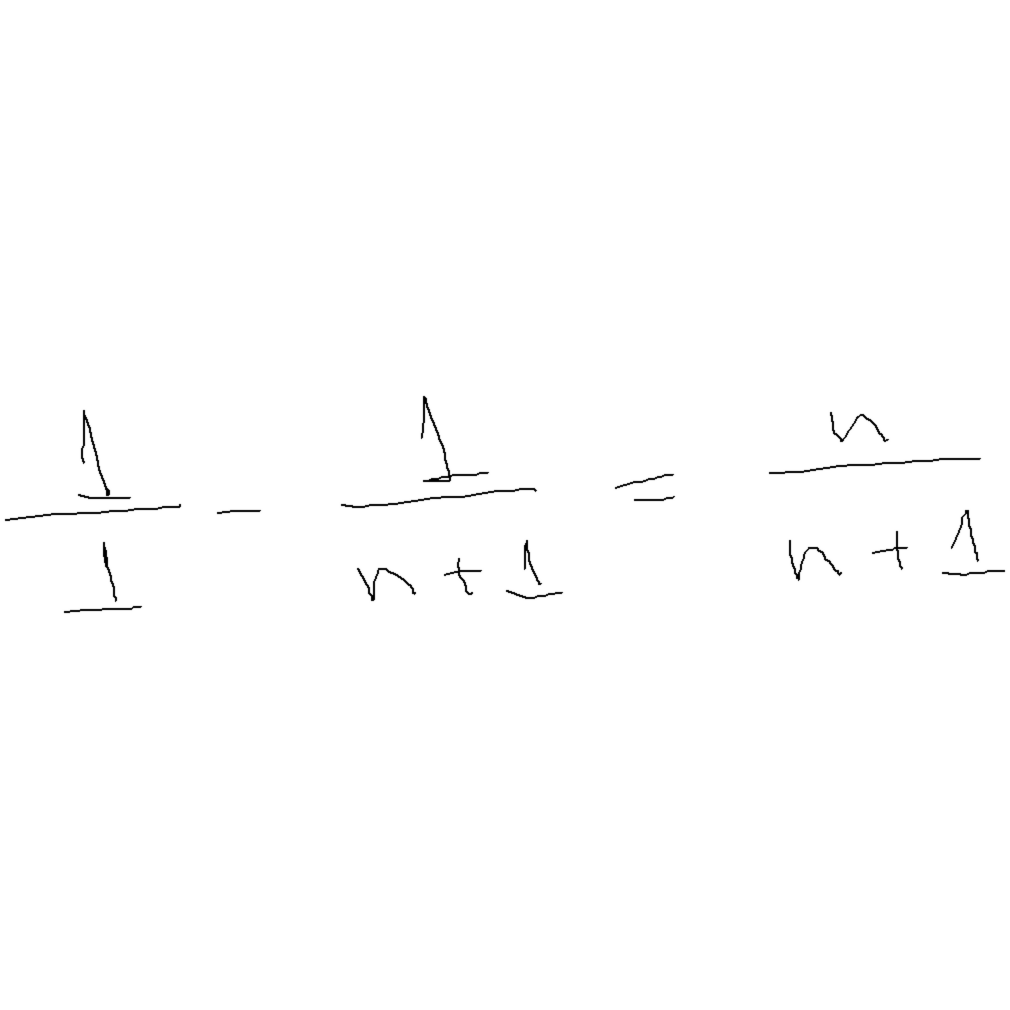 \frac{1}{1} - \frac{1}{n+1} = \frac{n}{n+1}